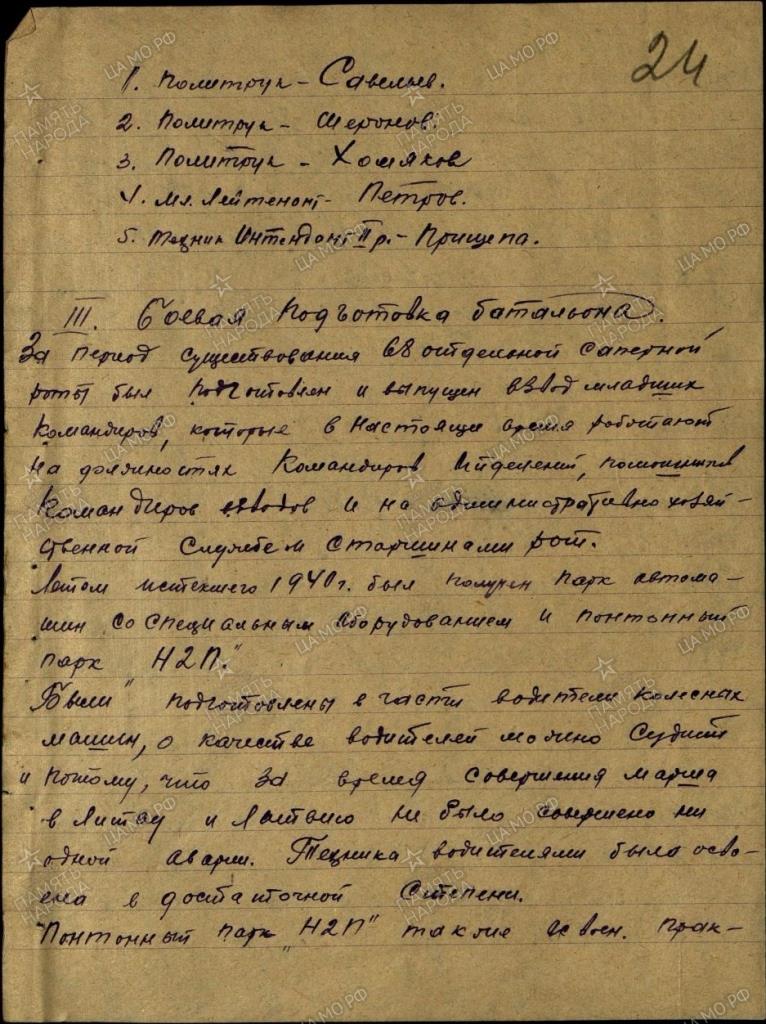 24
1. Политрук - Савельев.
2. Политрук - Шеронов.
3. Политрук - Хомяков
4. Мл. Лейтенант - Петров.
5. Техник Интендант II р. - Прищепа.
III. Боевая подготовка батальона.
За период существования 68 отдельной саперной
роты был подготовлен и выпущен взвод младших
командиров, которые в настоящи время работают
на должностях командиров отделений, помошников
командиров взводов и на административно хозяй-
ственной службе и старшинами рот.
Летом истекшего 1940 г. был получен парк автома-
шин со специальным оборудованием и понтонный
парк "Н2П."
Были подготовлены в части водители колесных
машин, о качестве водителей можно судить
и потому, что за время совершения марша
в Литву и Латвию не было совершено ни
одной аварии. Техника водителями была осво-
ена в достаточной степени.
Понтонный парк "Н2П" также освоен. Прак-